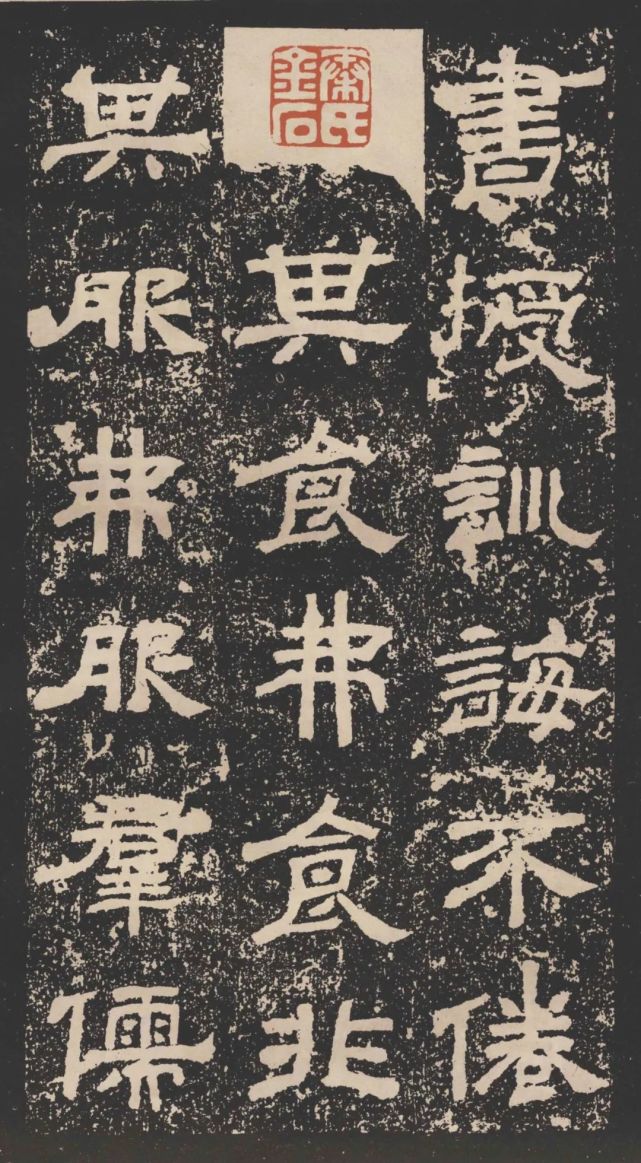 書授訓誨不倦
其食弗食非
其服弗服羣儒
金石